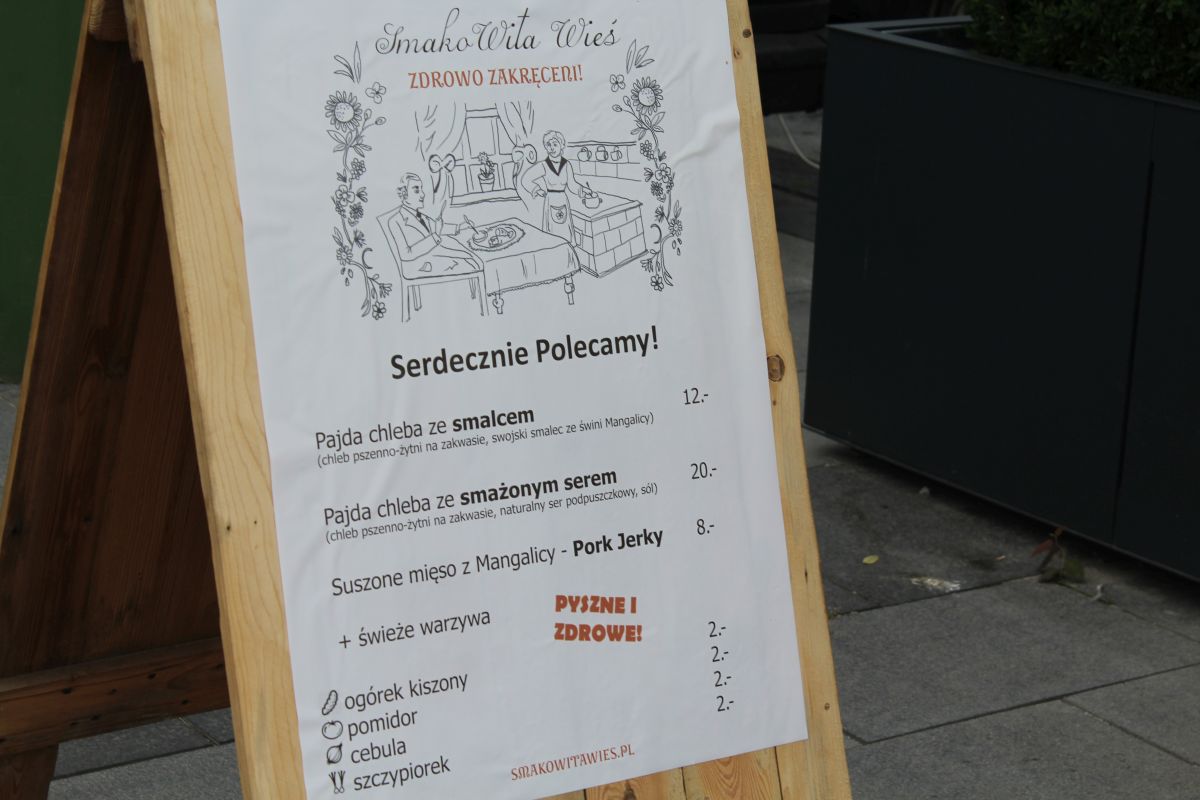 SmakoWita Wieś
ZDROWO ZAKRĘCENI!
Serdecznie Polecamy!
Pajda chleba ze smalcem 12.-
(chleb pszenno-żytni na zakwasie, swojski smalec ze świni Mangalicy)
Pajda chleba ze smażonym serem 20.-
(chleb pszenno-żytni na zakwasie, naturalny ser podpuszczkowy, sól)
Suszone mięso z Mangalicy - Pork Jerky 8.-
+ świeże warzywa
PYSZNE I
ZDROWE!
ogórek kiszony 2.-
pomidor 2.-
cebula 2.-
szczypiorek 2.-
SMAKOWITAWIES.PL